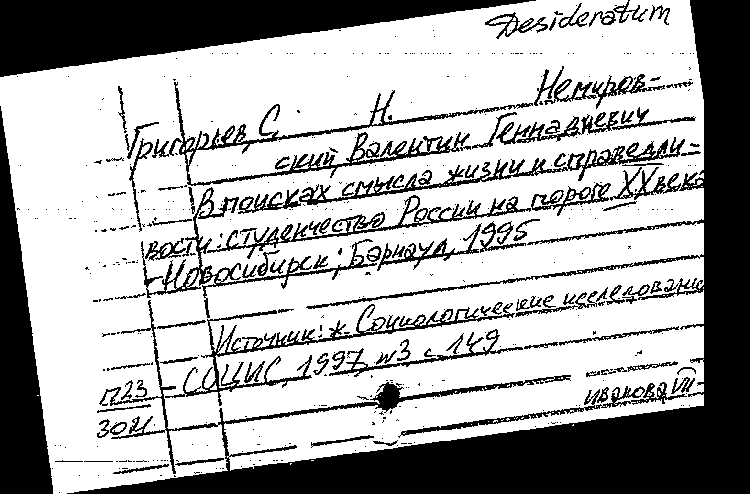 Desideratum
Григорьев, С. Н. Немиров-
ский, Валентин Геннадиевич
В поисках смысла жизни и справедли-
вости: студенчество России на пороге XX века
- Новосибирск; Барнаул, 1995
Источник: ж. Социологические исследования
- СОЦИС, 1997, №3 с. 149
П23
30И
Иванова VII-